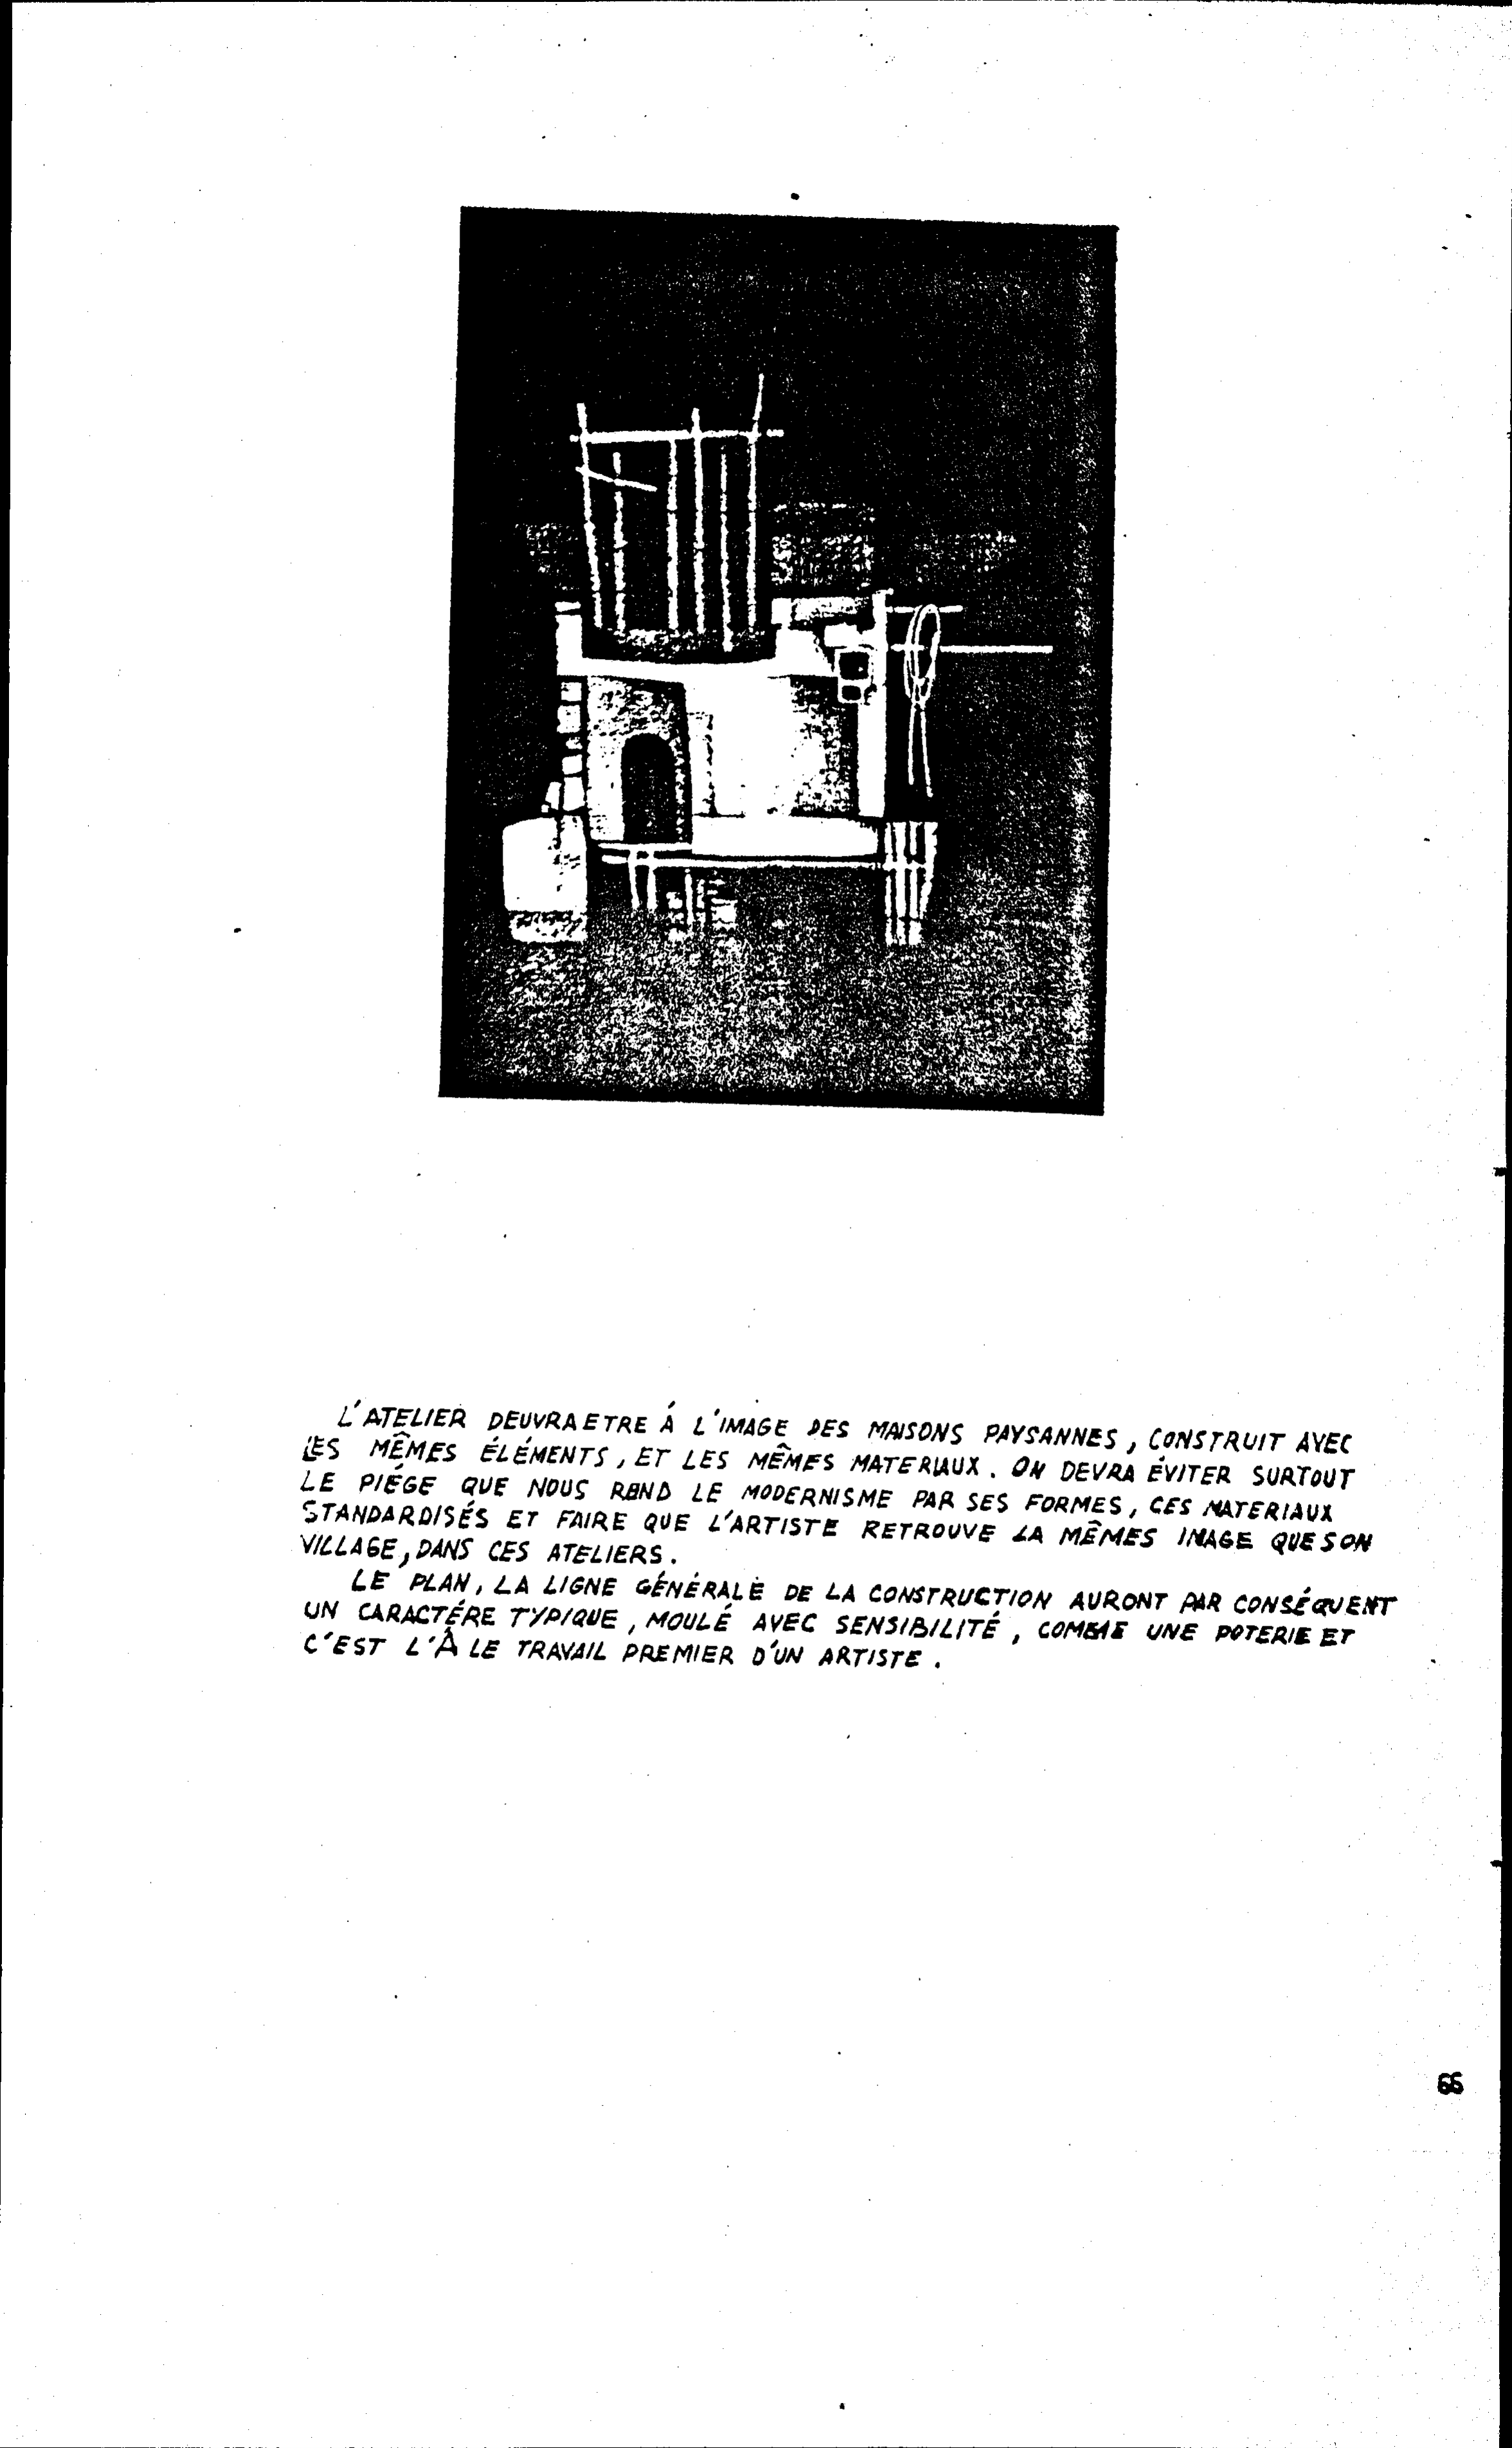 L'ATELIER DEUVRA ETRE Á L'IMAGE DES MAISONS PAYSANNES, CONSTRUIT AVEC
LES MÊMES ÉLÉMENTS, ET LES MÊMES MATERIAUX. ON DEVRA ÉVITER SURTOUT
LE PIÉGE QUE NOUS REND LE MODERNISME PAR SES FORMES, CES MATERIAUX
STANDARDISÉS ET FAIRE QUE L'ARTISTE RETROUVE LA MÊMES IMAGE QUE SON
VILLAGE, DANS CES ATELIERS.
LE PLAN, LA LIGNE GÉNÉRALE DE LA CONSTRUCTION AURONT PAR CONSÉQUENT
UN CARACTÉRE TYPIQUE, MOULÉ AVEC SENSIBILITÉ, COMME UNE POTERIE ET
C'EST L'À LE TRAVAIL PREMIER D'UN ARTISTE.
66